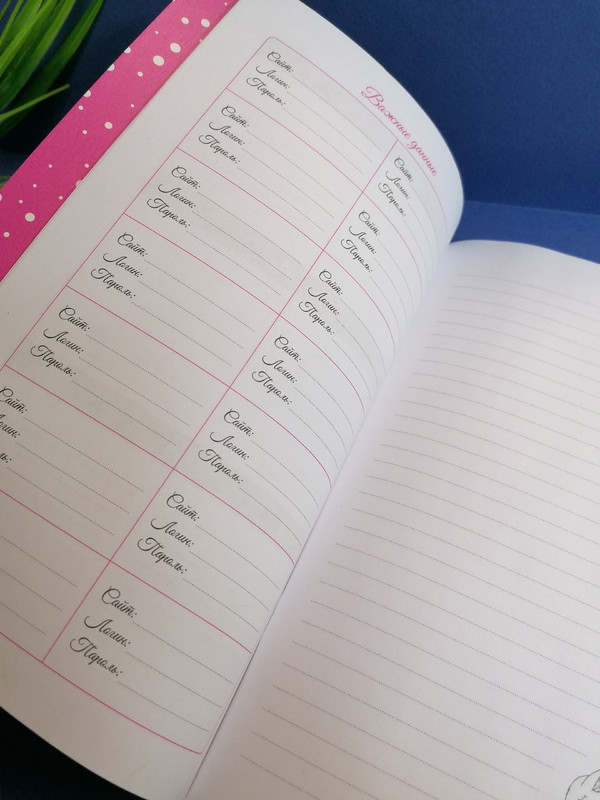 Важные данные
Сайт:
Логин:
Пароль:
Сайт:
Логин:
Пароль:
Сайт:
Логин:
Пароль:
Сайт:
Логин:
Пароль:
Сайт:
Логин:
Пароль:
Сайт:
Сайт:
Логин:
Пароль:
Сайт:
Логин:
Пароль:
Сайт:
Логин:
Пароль:
Сайт:
Логин:
Пароль:
Сайт:
Логин:
Пароль:
Сайт:
Логин:
Пароль:
Сайт:
Логин:
Пароль: